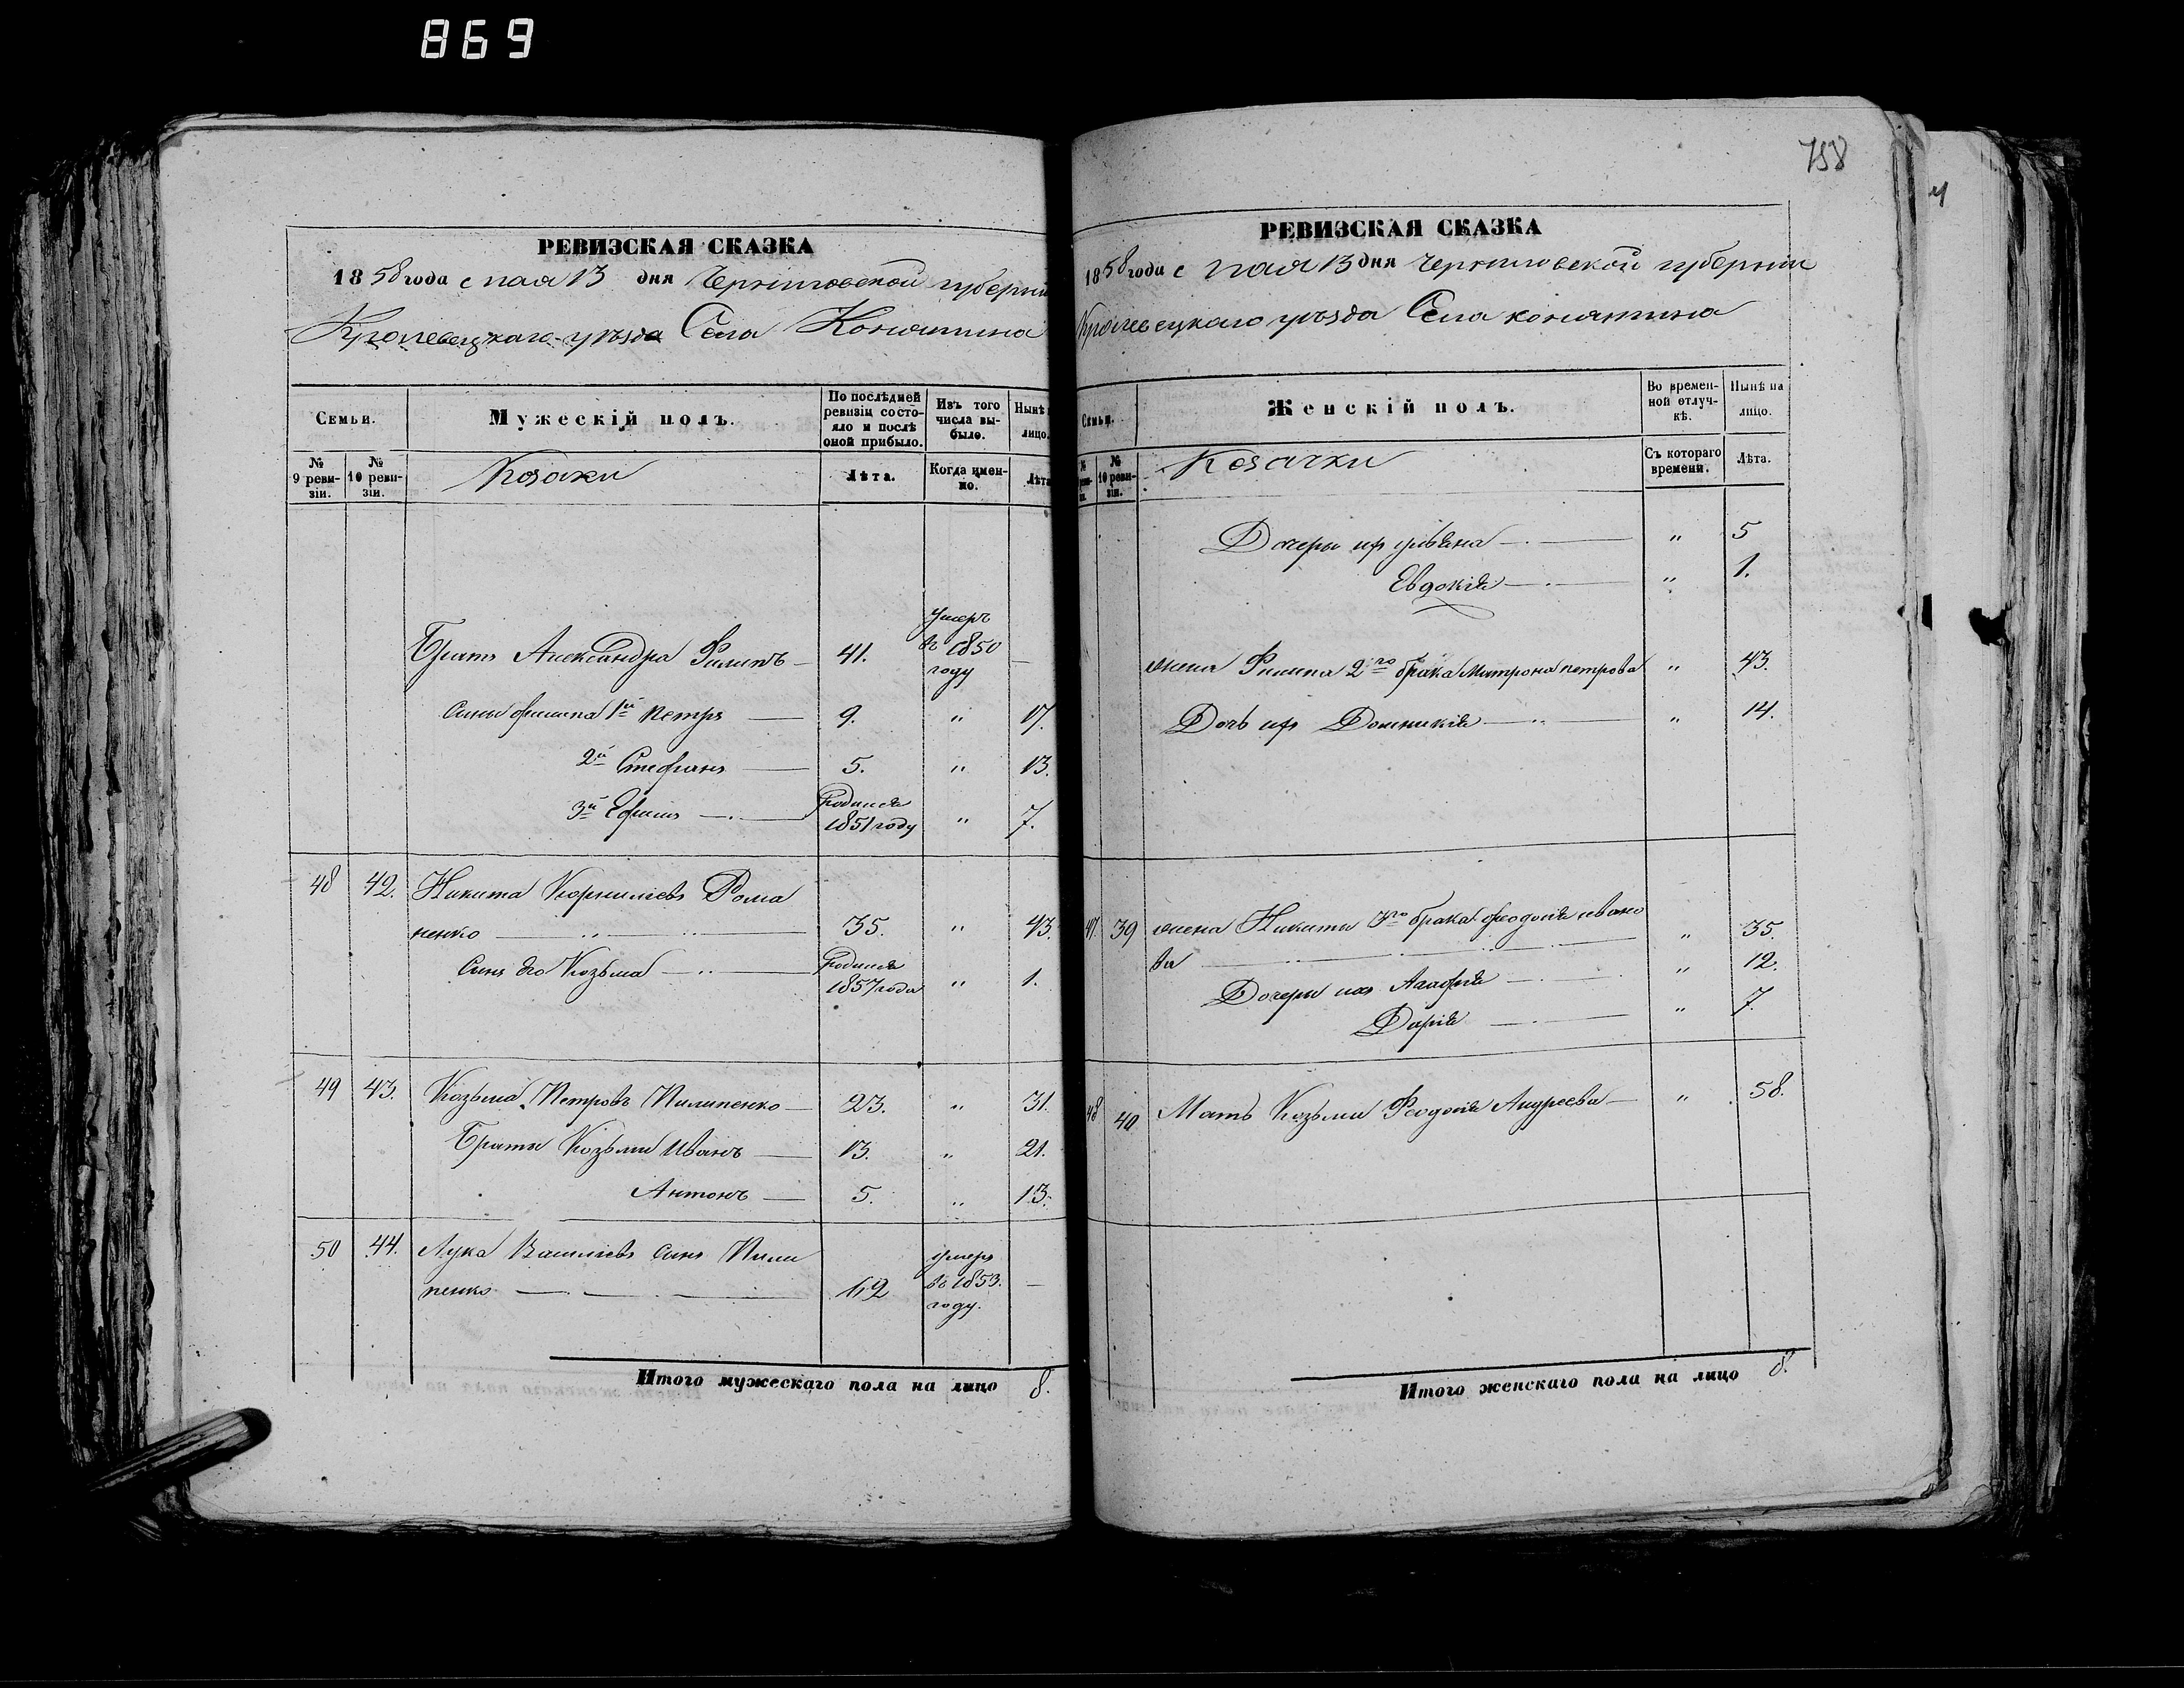 869
758
РЕВИЗСКАЯ СКАЗКА
1858 года мая 13 дня Черниговской губернии
Кролевецкаго уѣзда Села Конятина
Семьи.
Мужескій полъ.
По послѣдней ревизіи состояло и послѣ оной прибыло.
Изъ того числа выбыло.
Нынѣ лицо.
№ 9 ревизіи.
№ 10 ревизіи.
Козаки
Лѣта.
Когда именно.
Лѣта
Братъ Александра Филипъ — 41. умеръ въ 1850 году —
Сыны Филипа 1й Петръ — 9. " 17.
2й Стефанъ — 5. " 13.
3й Ефимъ — Родился 1851 году " 7.
48 42. Никита Корнилiевъ Рома
ненко — 35. " 43.
Сынъ его Козьма — Родился 1857 года " 1.
49 43. Козьма Петровъ Пилипенко — 23. " 31.
Браты Козьмы Иванъ — 13. " 21.
Антонъ — 5. " 13.
50 44. Лука Василіевъ сынъ Пили
пенко — 62 умеръ въ 1853. году. —
Итого мужескаго пола на лицо 8.
РЕВИЗСКАЯ СКАЗКА
1858 года мая 13 дня Черниговской губернии
Кролевецкаго уѣзда Села конятина
Семьи.
Женскій полъ.
Во временной отлучкѣ.
Нынѣ на лицо.
№ 10 ревизіи.
Козачки
Съ котораго времени.
Лѣта.
Дочеры их — " 5
Евдокія — " 1.
жена Филипа 2го брака Матрона петрова " 43.
Дочь их Домникія — " 14.
47. 39 жена Никиты 3го брака феодосія ивано
ва — " 35.
Дочеры их Агафія — " 12.
Дарія — " 7.
48 40 Мать Козьмы Феодосія Андреева — " 58.
Итого женскаго пола на лицо 8.